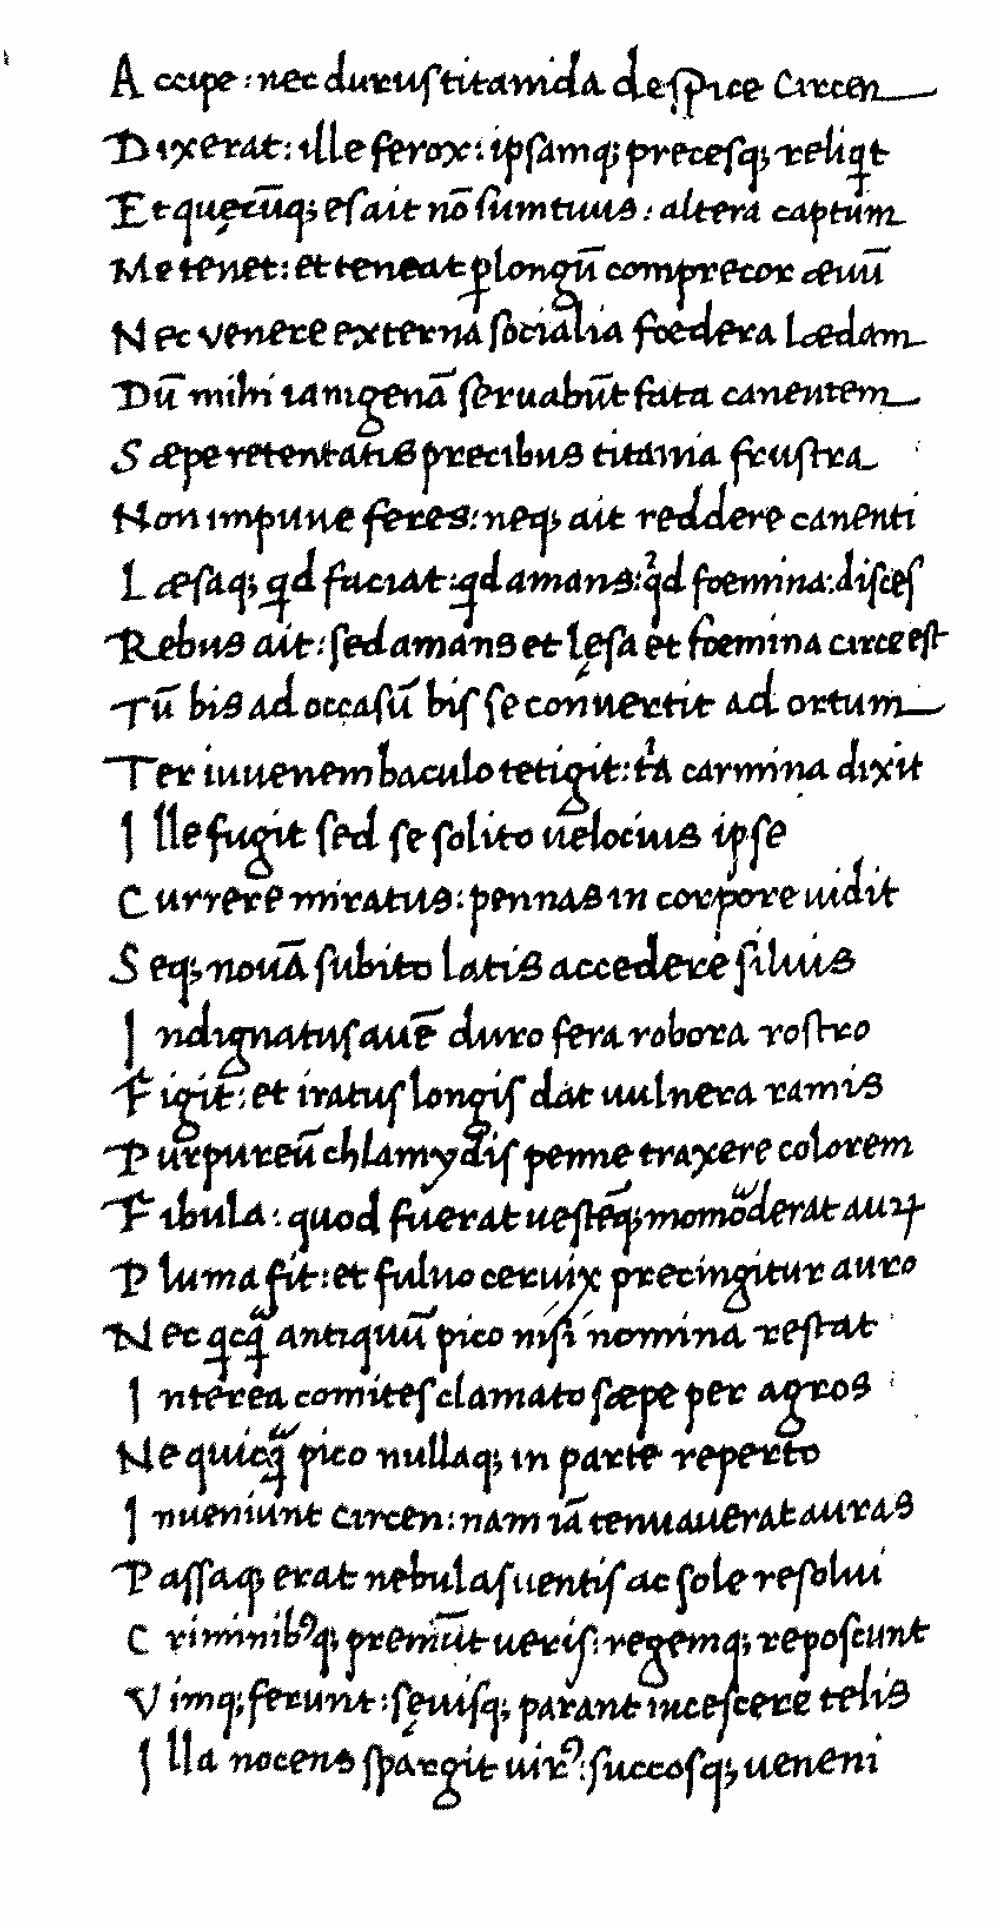 Accipe: nec durus titanida despice Circen
Dixerat: ille ferox: ipsamq; precesq; reliqt
Et quęcūq; es ait nō sum tuus: altera captum
Me tenet: et teneat ꝑ longū comprecor æuū
Nec venere externa socialia fœdera lædam
Dū mihi ianigenā seruabūt fata canentem
Sæpe retentatis precibus titania frustra
Non impune feres: neq; ait reddere canenti
Læsaq; qd faciat: qd amans: qd foemina: disces
Rebus ait: sed amans et lęsa et foemina circe est
Tū bis ad occasū bis se conuertit ad ortum
Ter iuuenem baculo tetigit: tͥa carmina dixit
Ille fugit sed se solito uelocius ipse
Currere miratus: pennas in corpore uidit
Seq; nouā subito latis accedere siluis
Indignatus auē duro fera robora rostro
Figit: et iratus longis dat uulnera ramis
Purpureū chlamydis penne traxere colorem
Fibula: quod fuerat uestēq; momorderat auꝝ
Pluma fit: et fuluo ceruix precingitur auro
Nec qcqᷓ antiquū pico nisi nomina restat
Interea comites clamato sæpe per agros
Ne quicqᷓ pico nullaq; in parte reperto
Inueniunt circen: nam iā tenuauerat auras
Passaq; erat nebulas uentis ac sole resolui
Criminibꝰq; premūt ueris: regemq; reposcunt
Vimq; ferunt: sęuisq; parant incescere telis
Illa nocens spargit uirꝰ: succosq; ueneni